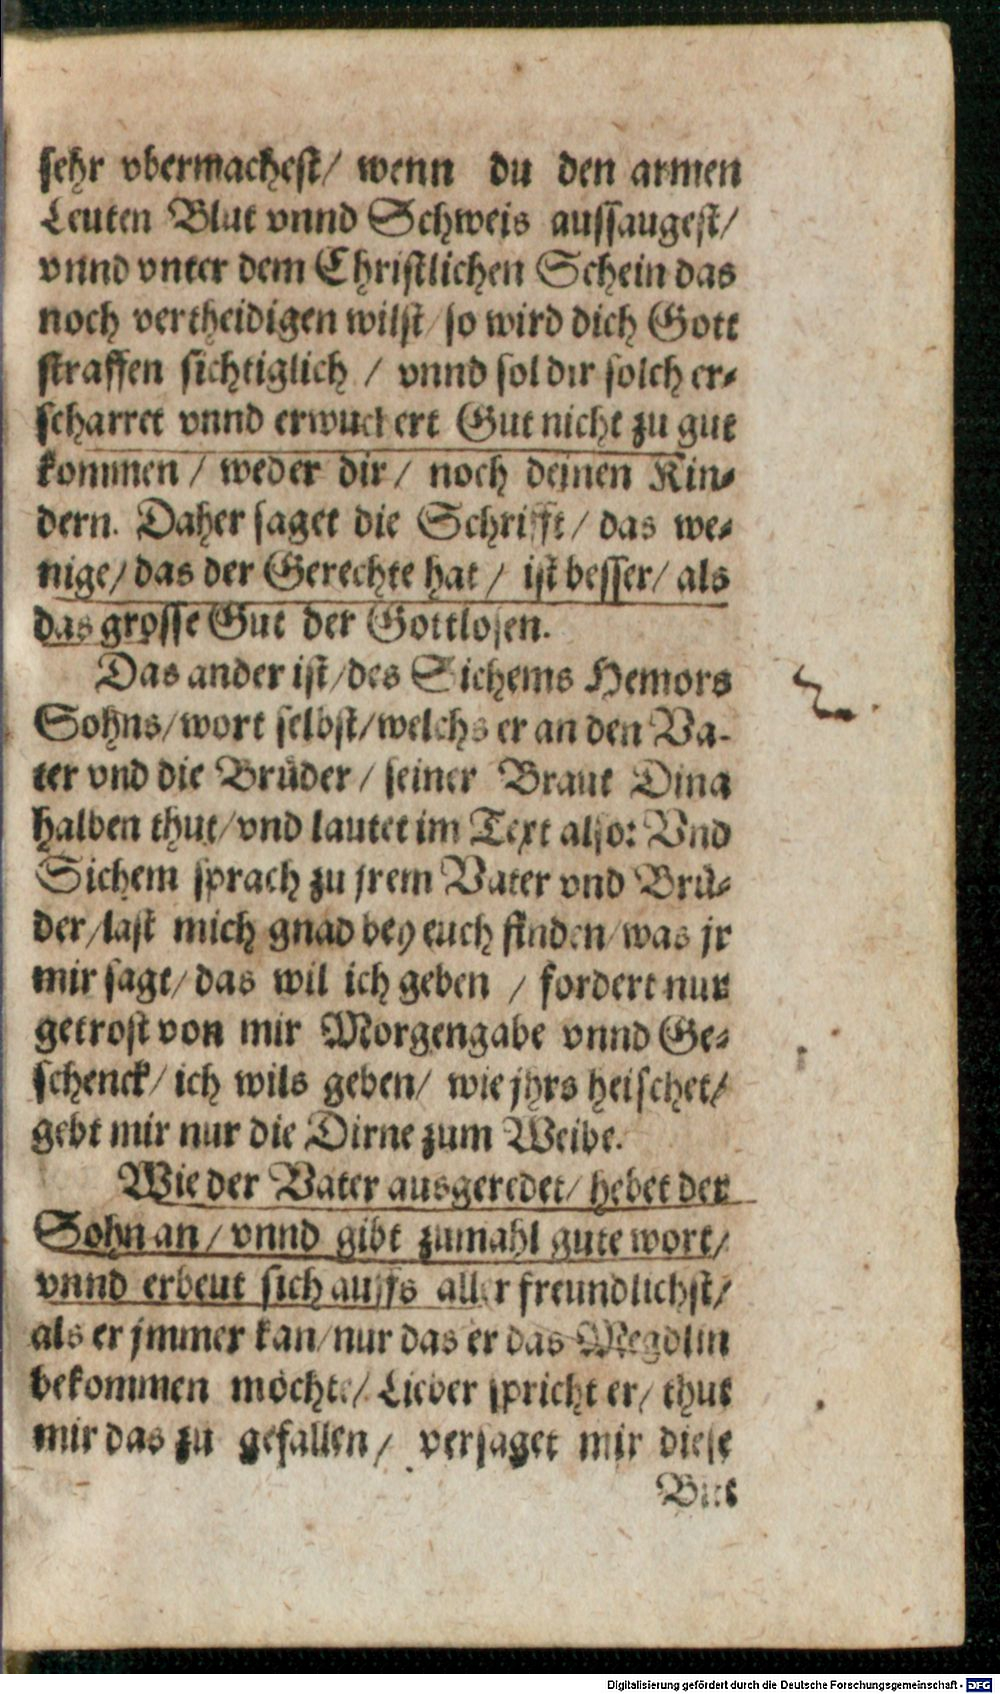 sehr vbermachest/ wenn du den armen
Leuten Blut vnnd Schweis aussaugest/
vnnd vnter dem Christlichen Schein das
noch vertheidigen wilst/ so wird dich Gott
straffen sichtiglich / vnnd sol dir solch er-
scharret vnnd erwuchert Gut nicht zu gut
kommen / weder dir / noch deinen Kin-
dern. Daher saget die Schrifft/ das we-
nige/ das der Gerechte hat / ist besser/ als
das grosse Gut der Gottlosen.
Das ander ist/ des Sichems Hemors
Sohns/ wort selbst/ welchs er an den Va-
ter vnd die Brůder / seiner Braut Dina
halben thut/ vnd lautet im Text also: Vnd
Sichem sprach zu jrem Vater vnd Brů-
der/ last mich gnad bey euch finden/ was jr
mir sagt/ das wil ich geben / fordert nur
getrost von mir Morgengabe vnnd Ge-
schenck/ ich wils geben/ wie jhrs heischet/
gebt mir nur die Dirne zum Weibe.
Wie der Vater ausgeredet/ hebet der
Sohn an/ vnnd gibt zumahl gute wort/
vnnd erbeut sich auffs aller freundlichst/
als er jmmer kan/ nur das er das Megdlin
bekommen möchte/ Lieber spricht er/ thut
mir das zu gefallen/ versaget mir diese
Bitt
Digitalisierung gefördert durch die Deutsche Forschungsgemeinschaft - DFG